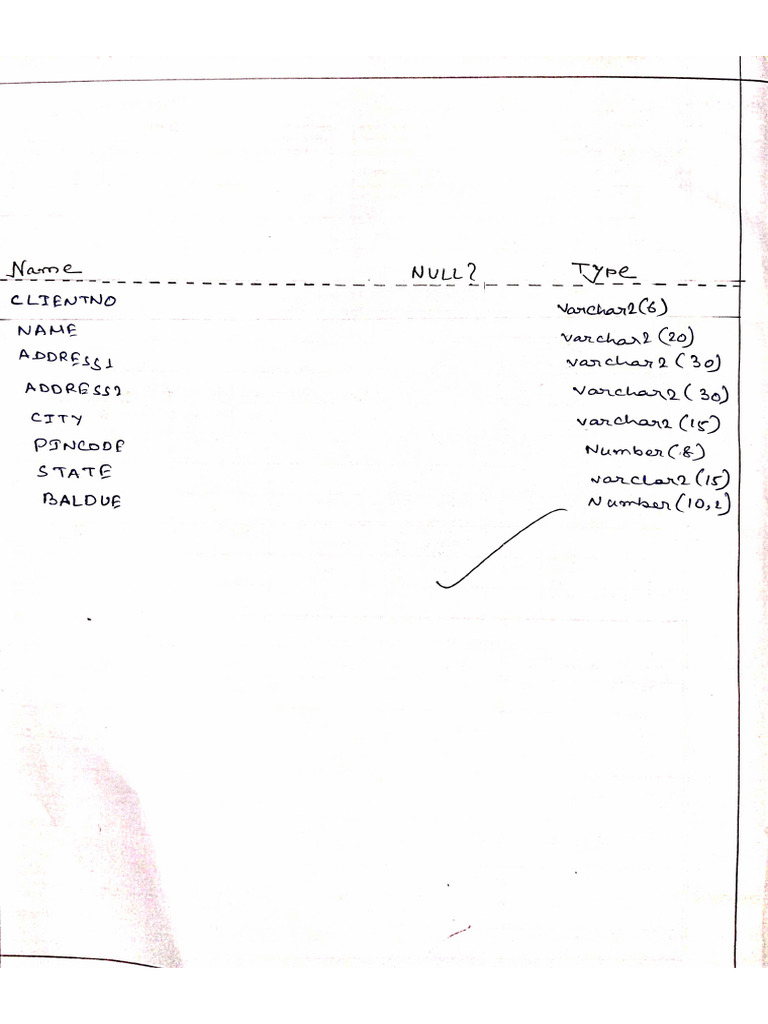 Name NULL? Type
CLIENTNO varchar2(6)
NAME varchar2(20)
ADDRESS1 varchar2(30)
ADDRESS2 varchar2(30)
CITY varchar2(15)
PINCODE Number(8)
STATE varchar2(15)
BALDUE Number(10,2)